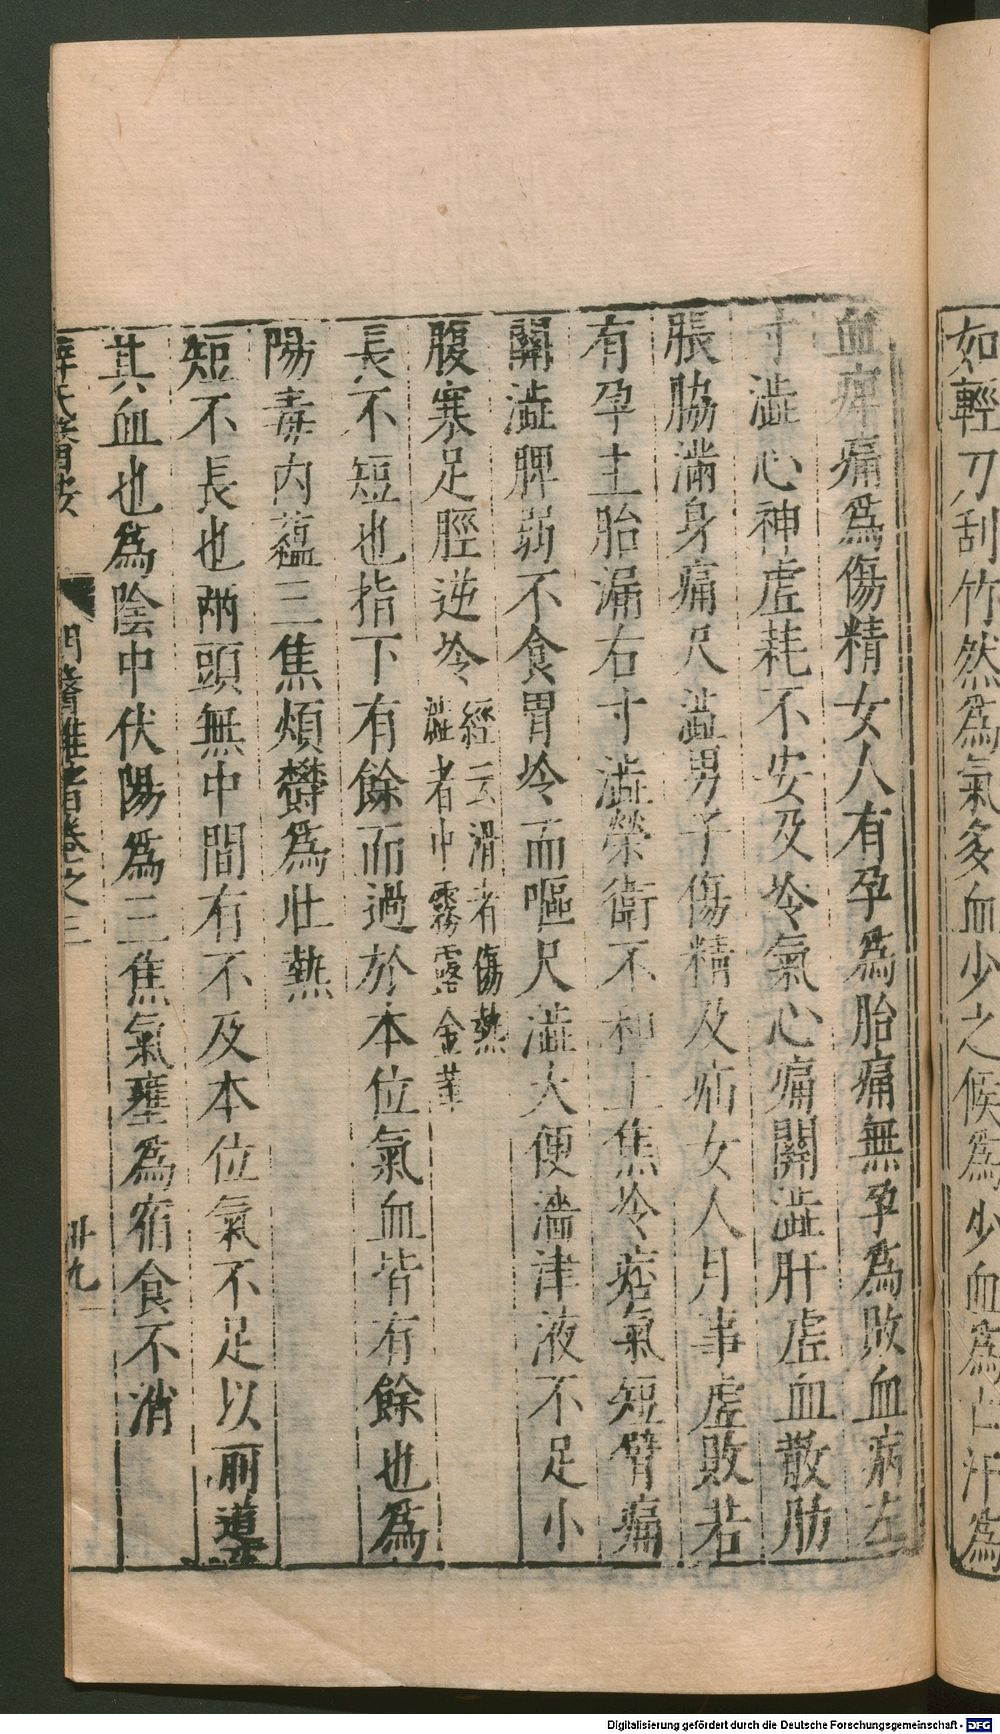 如輕刀刮竹然為氣多血少之候為少血為亡汗為
血痺痛為傷精女人有孕為胎痛無孕為敗血病左
寸澁心神虛耗不安及冷氣心痛關澁肝虛血散肋
脹脇滿身痛尺澁男子傷精及疝女人月事虛敗若
有孕主胎漏右寸澁榮衛不和上焦冷痞氣短臂痛
關澁脾弱不食胃冷而嘔尺澁大便濇津液不足小
腹寒足脛逆冷
經云滑者傷熱
澁者中霧露金華
長不短也指下有餘而過於本位氣血皆有餘也為
陽毒內蘊三焦煩鬱為壯熱
短不長也兩頭無中間有不及本位氣不足以前道
其血也為陰中伏陽為三焦氣壅為宿食不消
薛氏醫按
難著卷之三
卅九
Digitalisierung gefördert durch die Deutsche Forschungsgemeinschaft - DFG